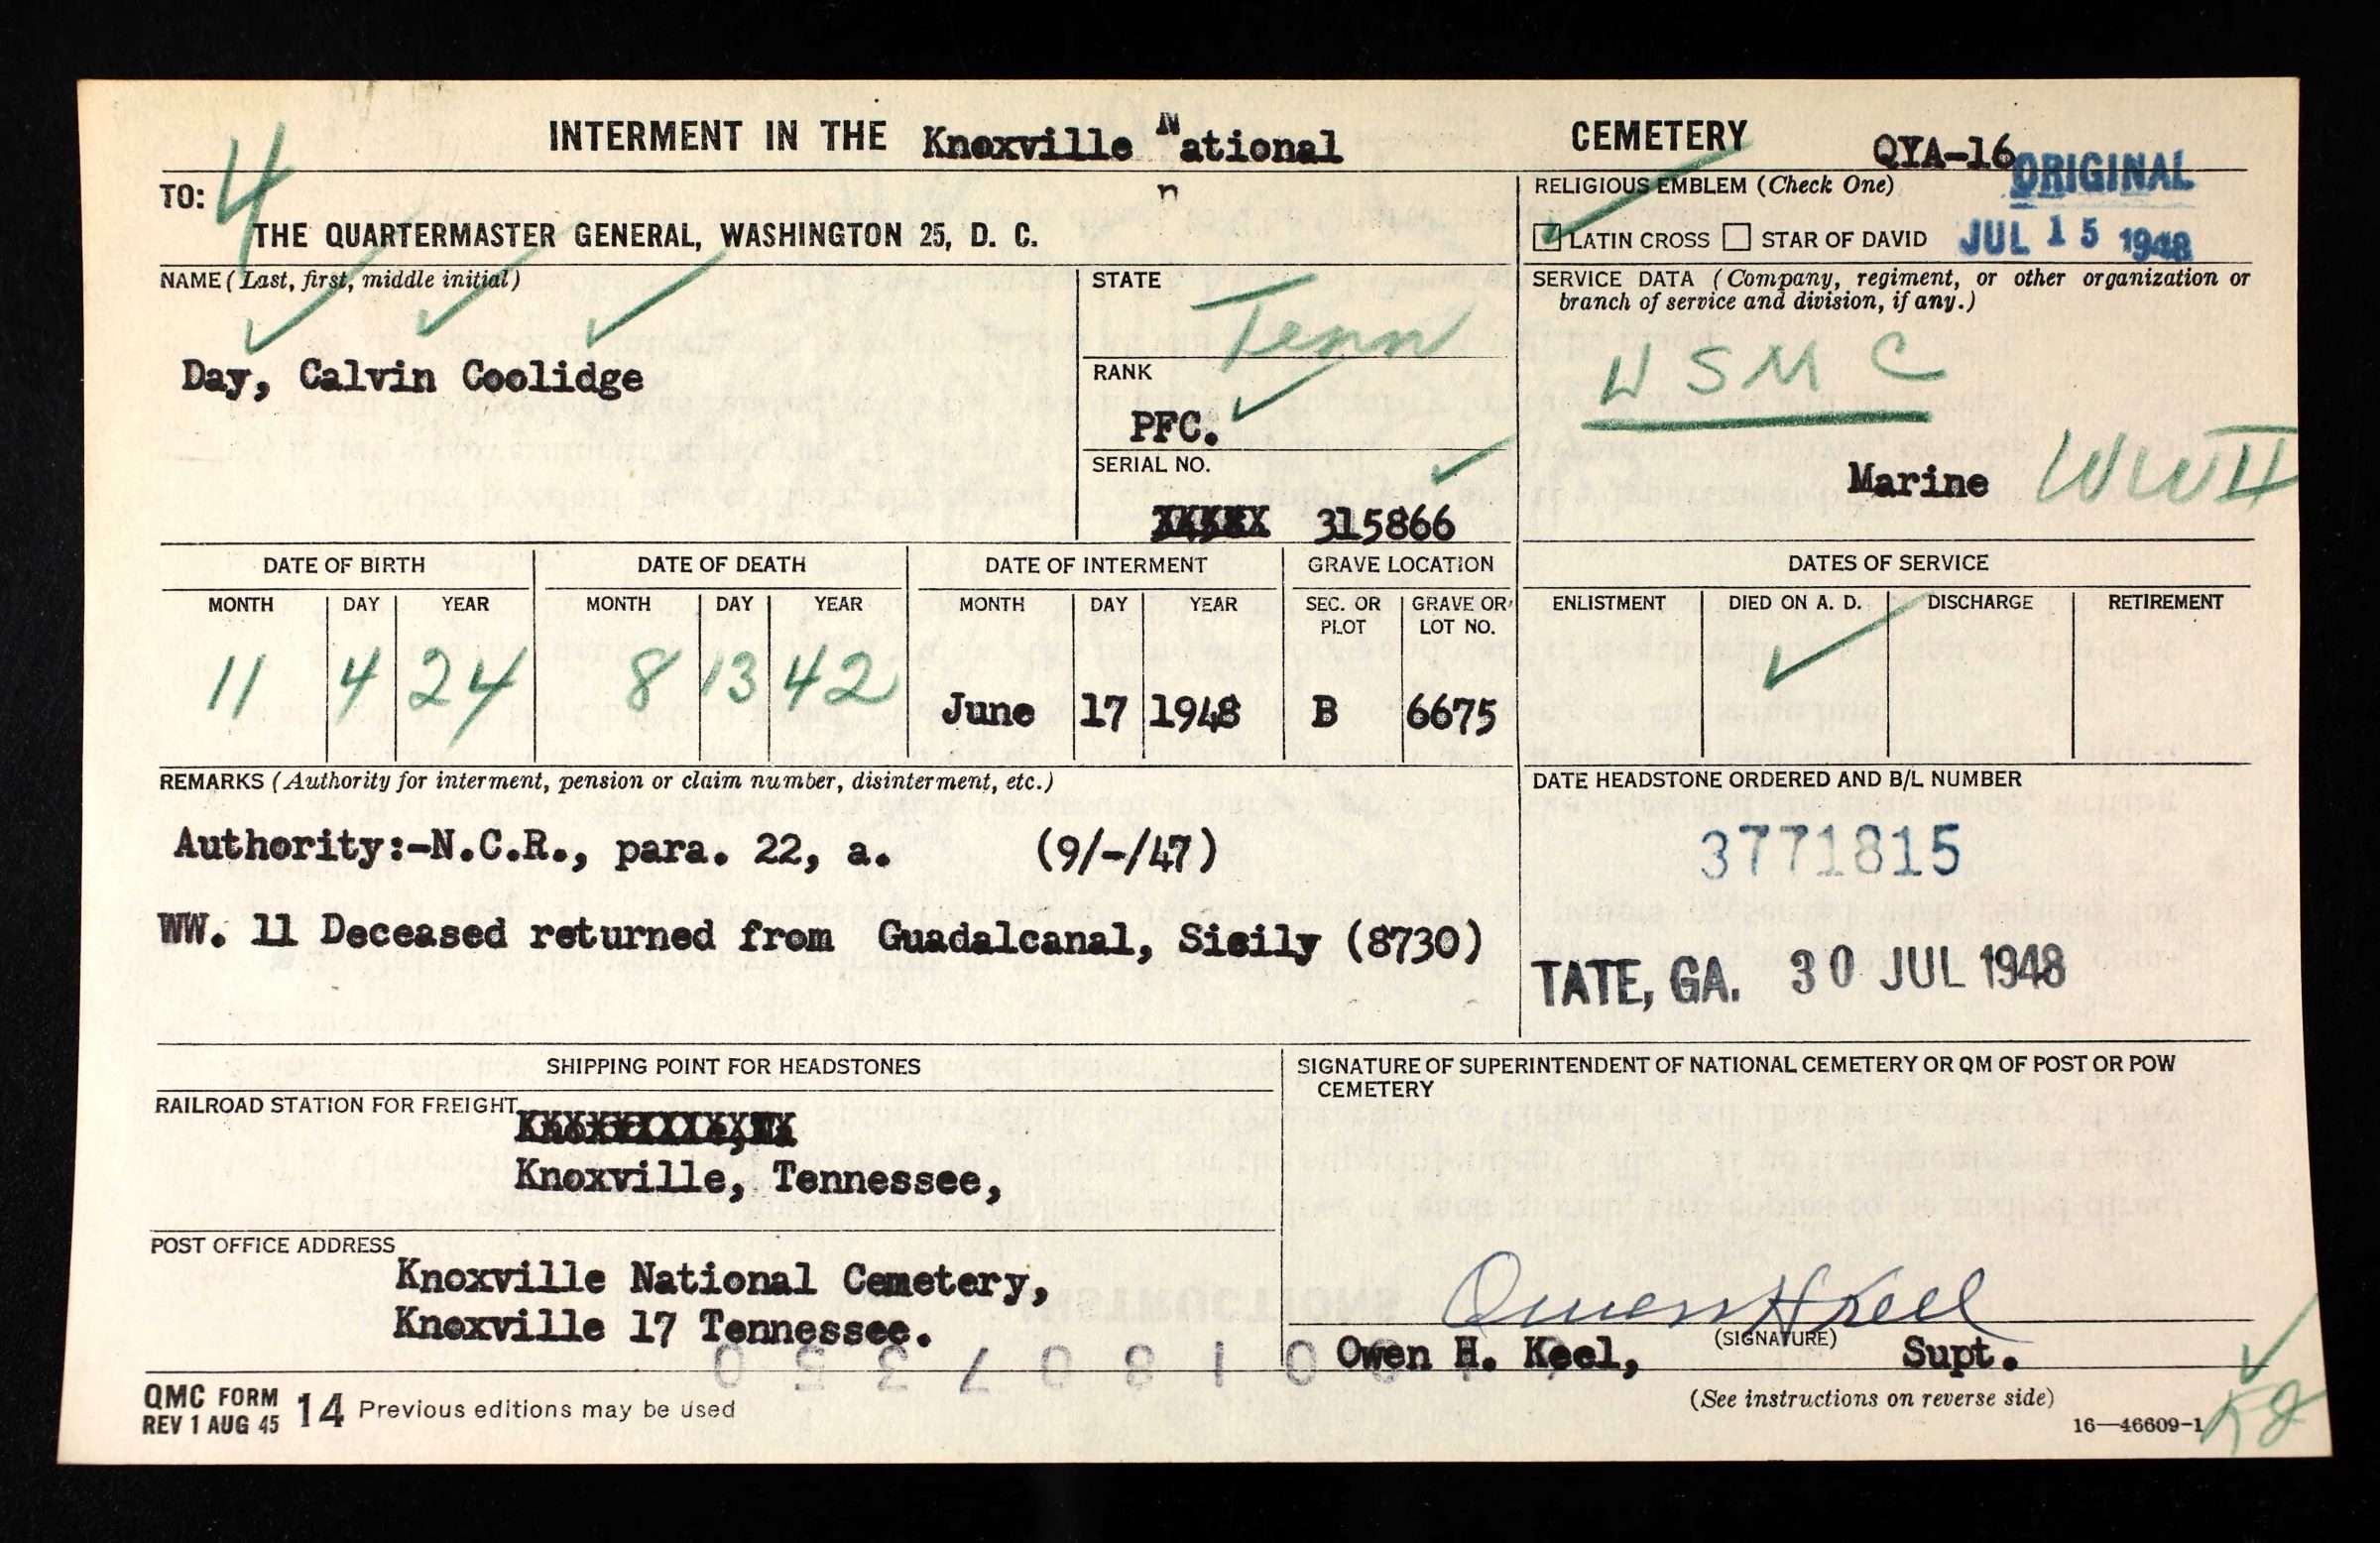 INTERMENT IN THE Knoxville National CEMETERY QYA-16
ORIGINAL
JUL 15 1948
4
TO:
n
THE QUARTERMASTER GENERAL, WASHINGTON 25, D. C.
RELIGIOUS EMBLEM (Check One)
LATIN CROSS STAR OF DAVID
NAME (Last, first, middle initial)
Day, Calvin Coolidge
STATE
Tenn
RANK
PFC.
SERIAL NO.
315866
SERVICE DATA (Company, regiment, or other organization or
branch of service and division, if any.)
USMC
Marine WWII
DATE OF BIRTH DATE OF DEATH DATE OF INTERMENT GRAVE LOCATION DATES OF SERVICE
MONTH DAY YEAR MONTH DAY YEAR MONTH DAY YEAR SEC. OR PLOT GRAVE OR LOT NO. ENLISTMENT DIED ON A. D. DISCHARGE RETIREMENT
11 4 24 8 13 42 June 17 1948 B 6675
REMARKS (Authority for interment, pension or claim number, disinterment, etc.)
Authority:-N.C.R., para. 22, a. (9/-/47)
WW. 11 Deceased returned from Guadalcanal, Sicily (8730)
DATE HEADSTONE ORDERED AND B/L NUMBER
3771815
TATE, GA. 30 JUL 1948
SHIPPING POINT FOR HEADSTONES
RAILROAD STATION FOR FREIGHT
Knoxville, Tennessee,
POST OFFICE ADDRESS
Knoxville National Cemetery,
Knoxville 17 Tennessee.
SIGNATURE OF SUPERINTENDENT OF NATIONAL CEMETERY OR QM OF POST OR POW
CEMETERY
Owen H Keel
(SIGNATURE)
Owen H. Keel, Supt.
(See instructions on reverse side)
16—46609-1
QMC FORM 14 Previous editions may be used
REV 1 AUG 45